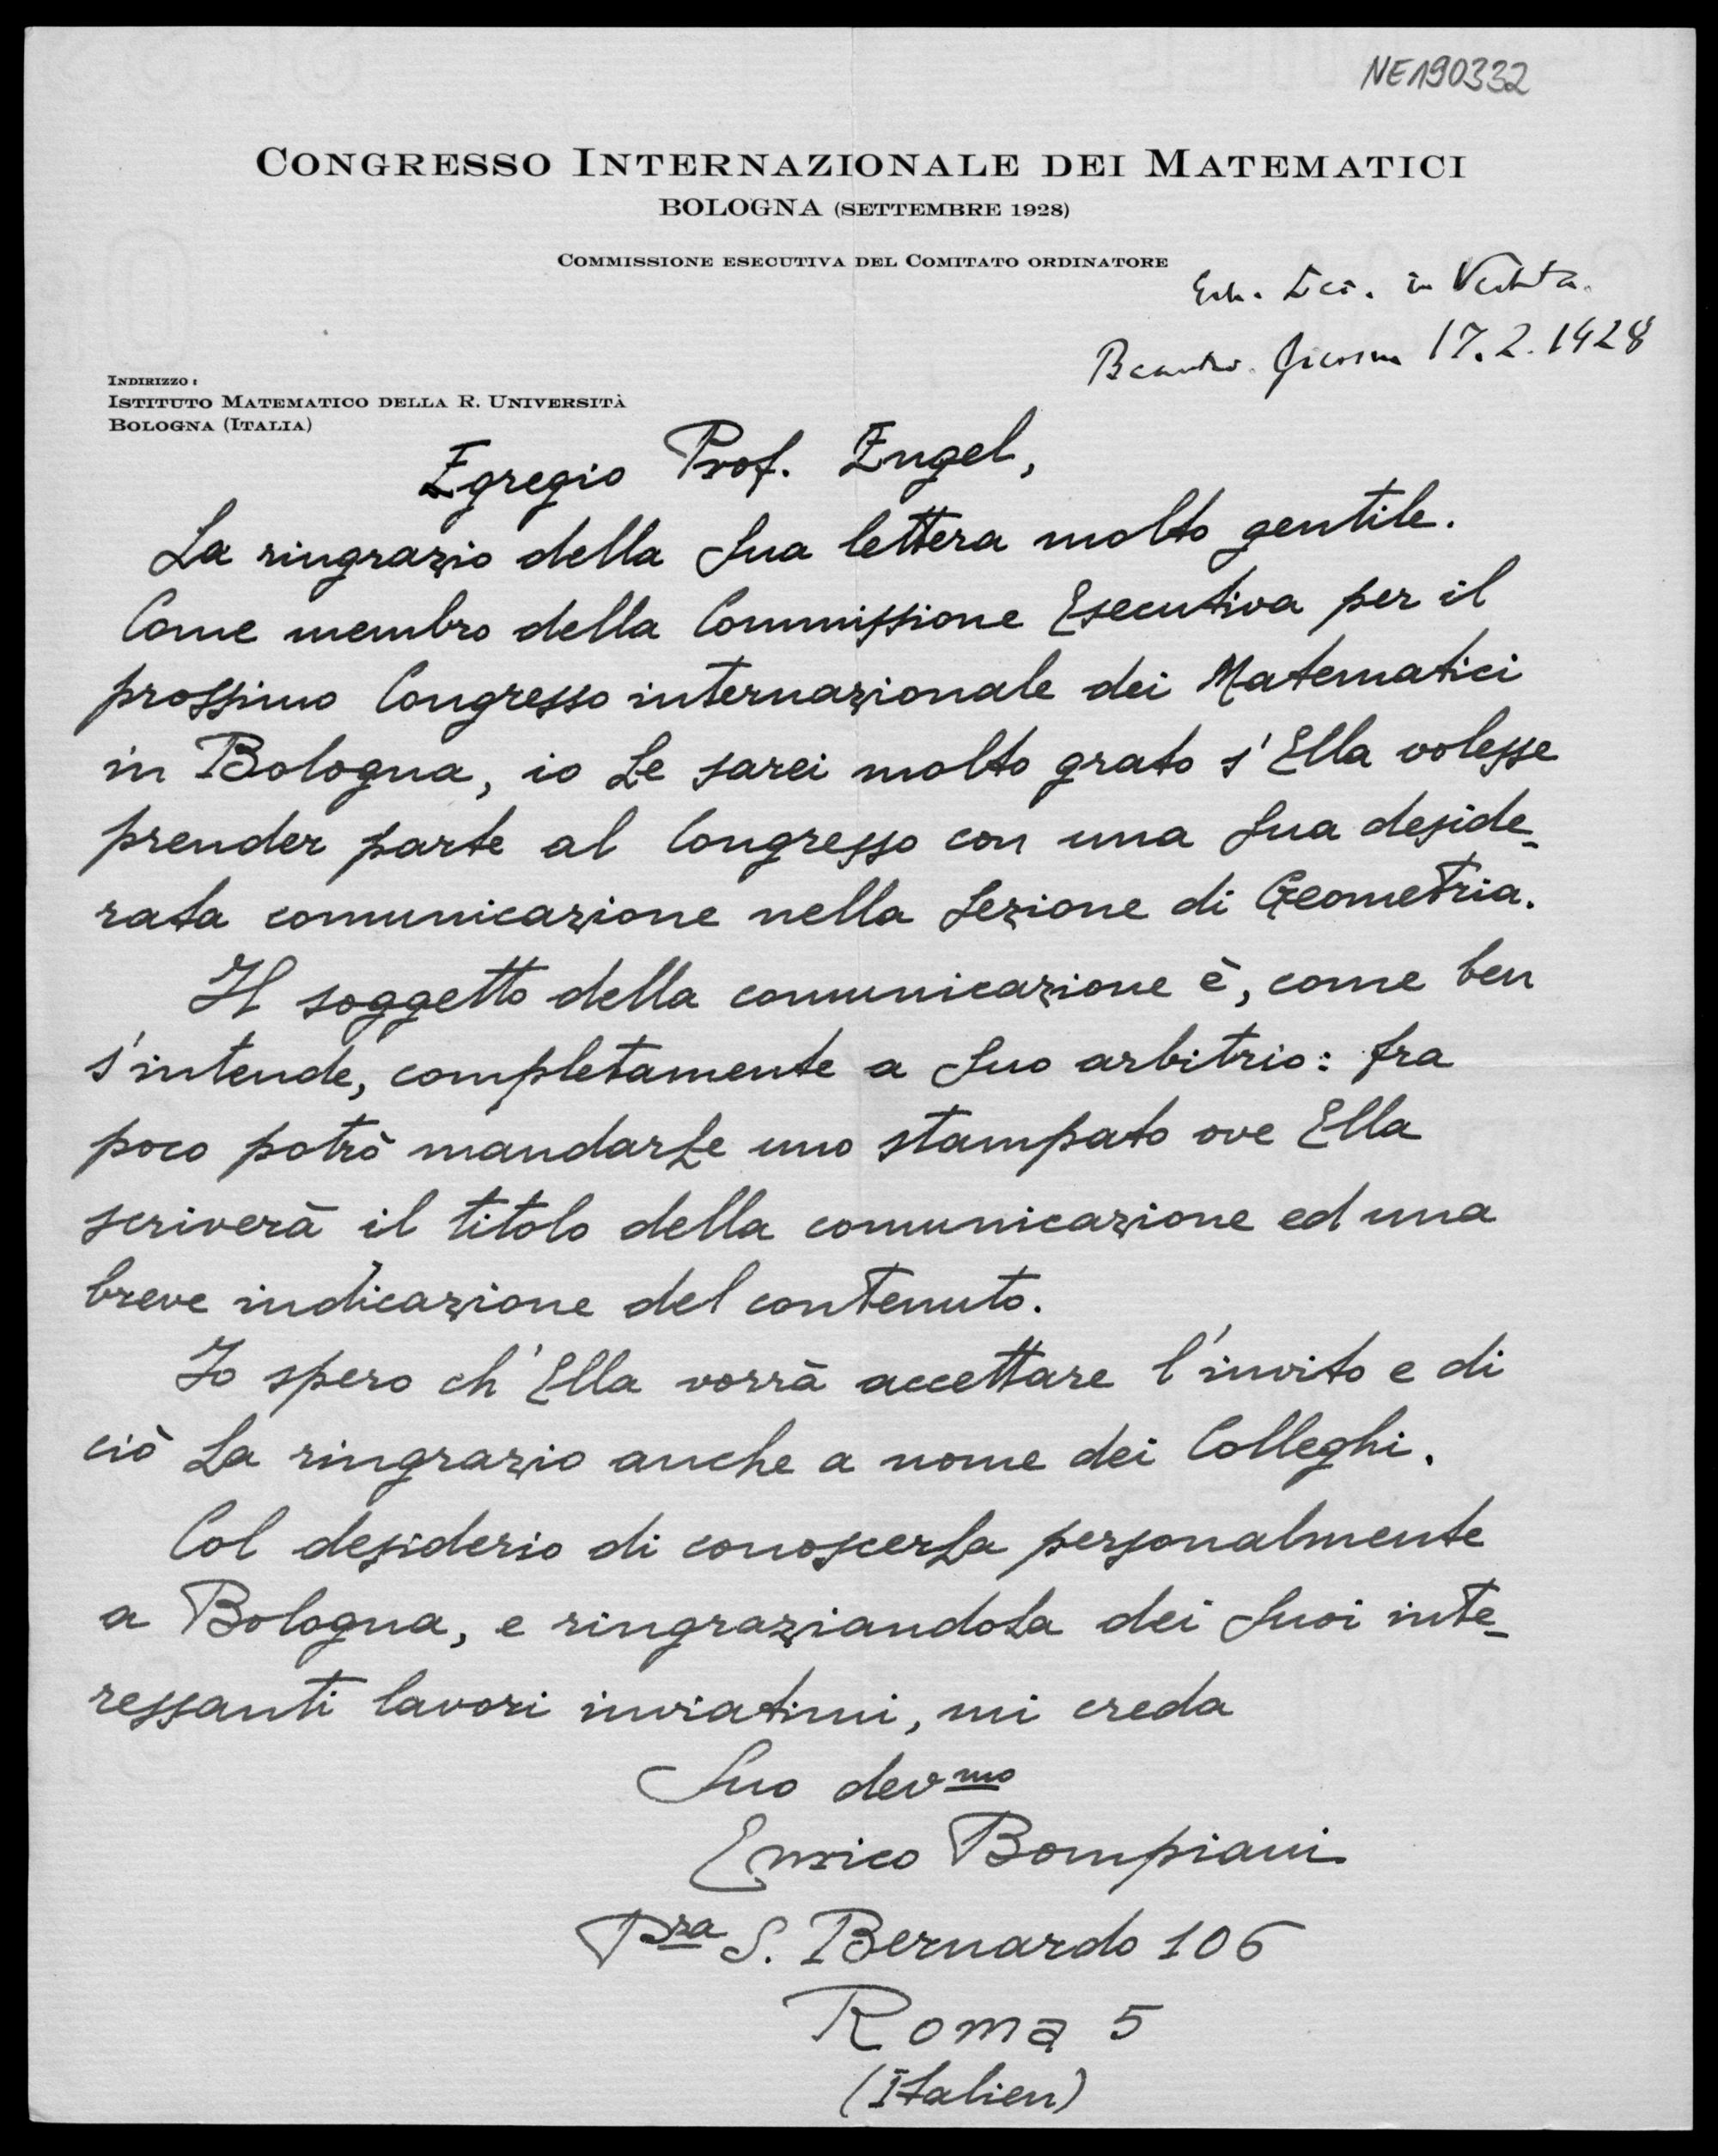 NE190332
CONGRESSO INTERNAZIONALE DEI MATEMATICI
BOLOGNA (SETTEMBRE 1928)
COMMISSIONE ESECUTIVA DEL COMITATO ORDINATORE
in
17.2.1928
INDIRIZZO:
ISTITUTO MATEMATICO DELLA R. UNIVERSITÀ
BOLOGNA (ITALIA)
Egregio Prof. Engel,
La ringrazio della Sua lettera molto gentile.
Come membro della Commissione Esecutiva per il
prossimo Congresso internazionale dei Matematici
in Bologna, io Le sarei molto grato s'Ella volesse
prender parte al Congresso con una Sua deside-
rata comunicazione nella Sezione di Geometria.
Il soggetto della comunicazione è, come ben
s'intende, completamente a Suo arbitrio: fra
poco potrò mandarLe uno stampato ove Ella
scriverà il titolo della comunicazione ed una
breve indicazione del contenuto.
Io spero ch'Ella vorrà accettare l'invito e di
ciò La ringrazio anche a nome dei Colleghi.
Col desiderio di conoscerLa personalmente
a Bologna, e ringraziandoLa dei Suoi inte-
ressanti lavori inviatimi, mi creda
Suo devmo
Enrico Bompiani
Pza S. Bernardo 106
Roma 5
(Italien)